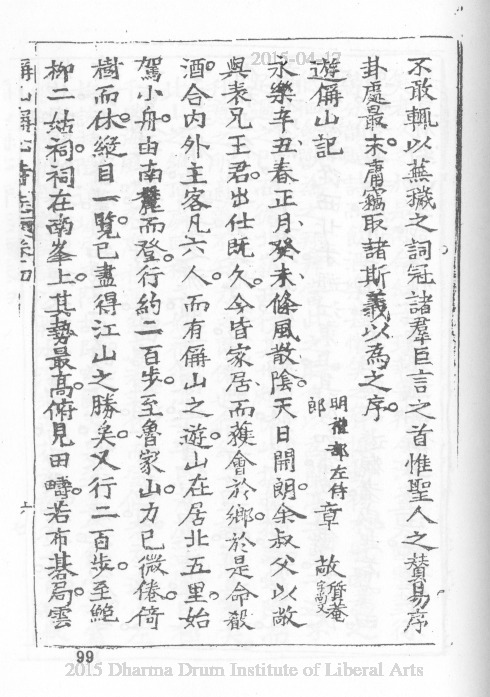 不敢輒以蕪穢之詞冠諸羣巨言之首惟聖人之贊易序
卦處最末庸竊取諸斯義以為之序。
遊偋山記
明禮部左侍郎 章 敞 質菴
永樂辛丑春正月癸未條風散陰天日開朗余叔父以敞
與表兄王君出仕既久今皆家居而獲會於鄉於是命殽
酒。合內外主客凡六人。而有偋山之遊山在居北五里。始
駕小舟由南麓而登。行約二百步至魯家山力已微倦倚
樹而休。縱目一覽。已盡得江山之勝矣。又行二百步。至鮑
柳二姑祠祠在南峯上。其勢最高。俯見田疇。若布碁局。雲
99
2015-04-17
2015 Dharma Drum Institute of Liberal Arts